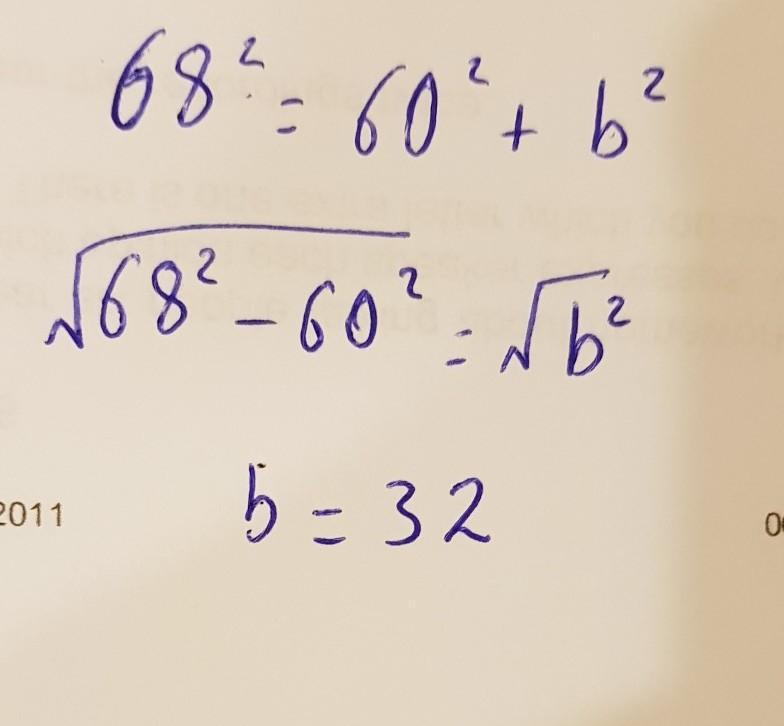 68² = 60² + b²
√68² - 60² = √b²
2011
b = 32